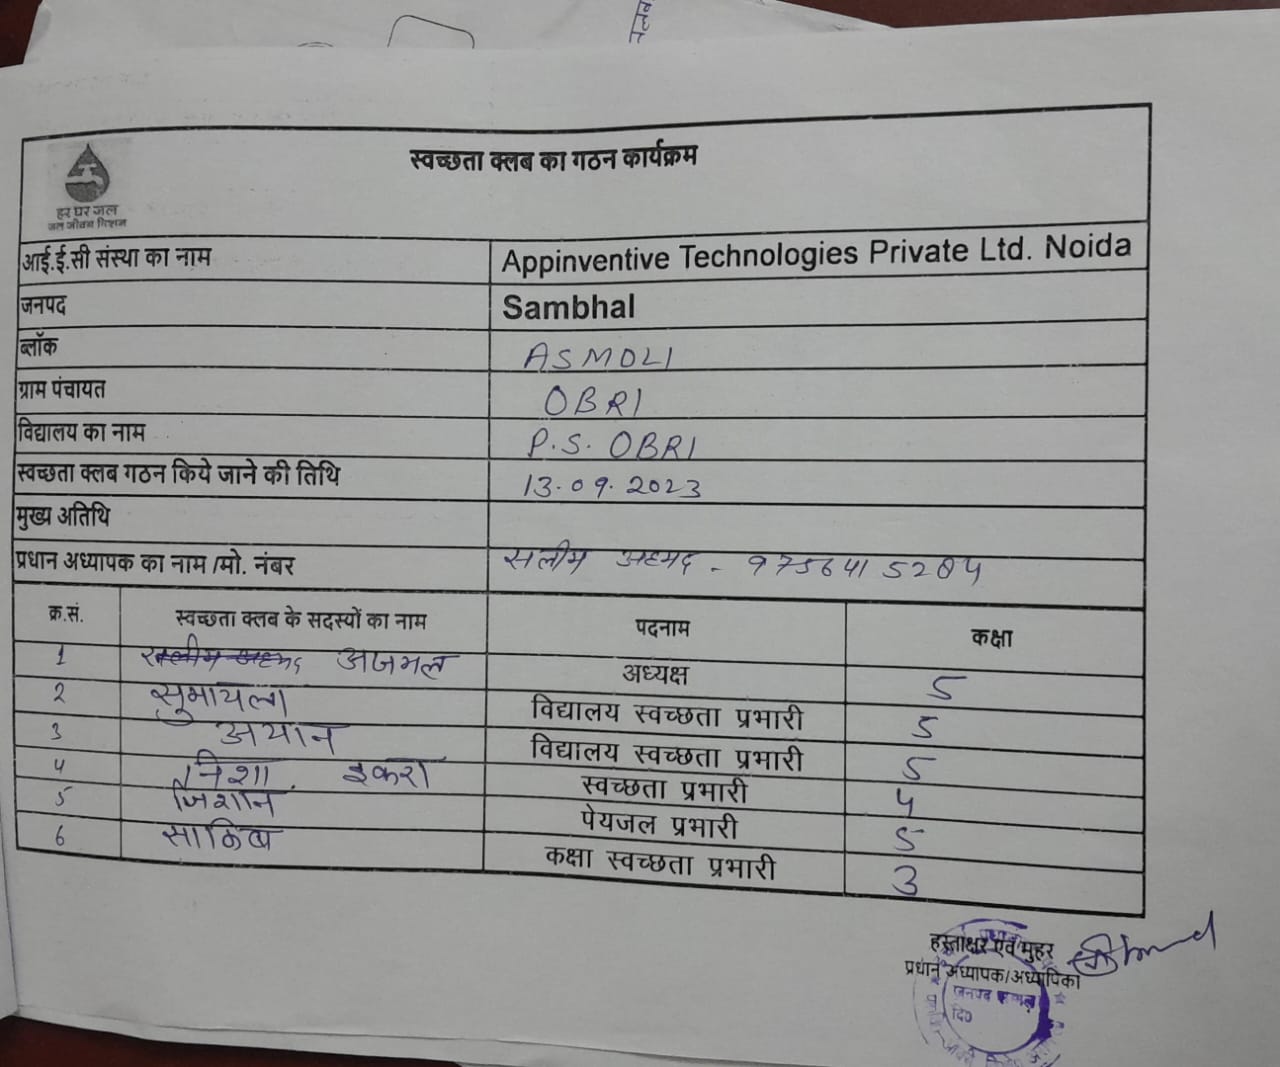 हर घर जल
जल जीवन मिशन
स्वच्छता क्लब का गठन कार्यक्रम
आई.ई.सी संस्था का नाम Appinventive Technologies Private Ltd. Noida
जनपद Sambhal
ब्लॉक ASMOLI
ग्राम पंचायत OBRI
विद्यालय का नाम P.S. OBRI
स्वच्छता क्लब गठन किये जाने की तिथि 13.09.2023
मुख्य अतिथि
प्रधान अध्यापक का नाम /मो. नंबर सलीम अहमद - 9756415284
क्र.सं. स्वच्छता क्लब के सदस्यों का नाम पदनाम कक्षा
1 सलीम अहमद अजमल अध्यक्ष 5
2 सुमायला विद्यालय स्वच्छता प्रभारी 5
3 अयान विद्यालय स्वच्छता प्रभारी 5
4 निशा इकरा स्वच्छता प्रभारी 4
5 जिशान पेयजल प्रभारी 5
6 साकिब कक्षा स्वच्छता प्रभारी 3
हस्ताक्षर एवं मुहर
प्रधान अध्यापक/अध्यापिका